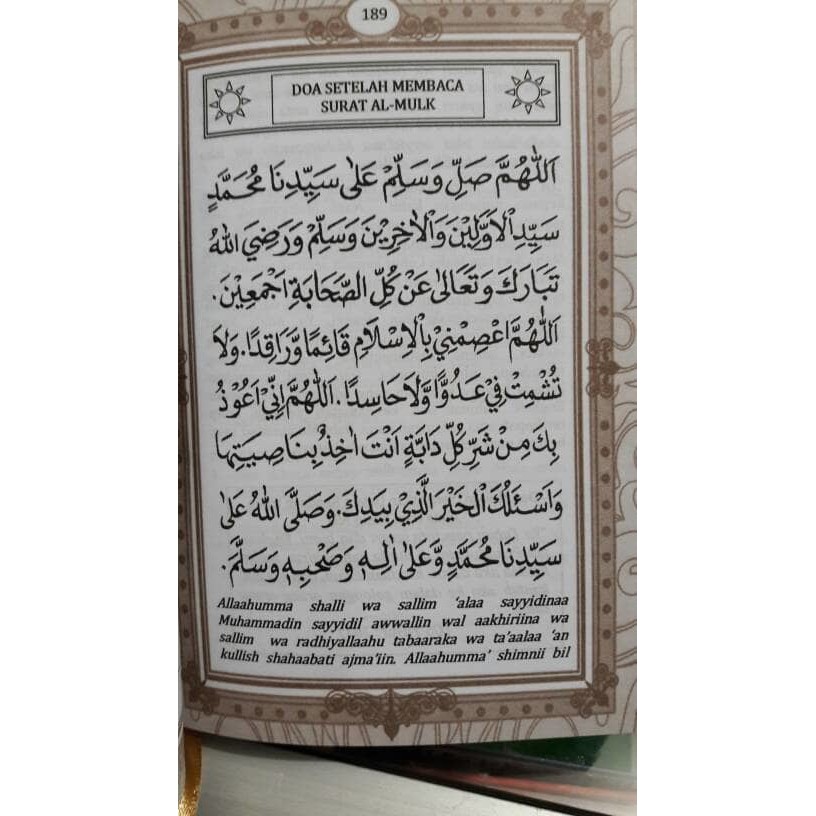 189
DOA SETELAH MEMBACA
SURAT AL-MULK
اَللّٰهُمَّ صَلِّ وَسَلِّمْ عَلٰى سَيِّدِنَا مُحَمَّدٍ
سَيِّدِ الْاَوَّلِيْنَ وَالْاٰخِرِيْنَ وَسَلِّمْ وَرَضِيَ اللهُ
تَبَارَكَ وَتَعَالٰى عَنْ كُلِّ الصَّحَابَةِ اَجْمَعِيْنَ.
اَللّٰهُمَّ اعْصِمْنِيْ بِالْاِسْلَامِ قَائِمًا وَّرَاقِدًا. وَلَا
تُشْمِتْ فِيْ عَدُوًّا وَّلَا حَاسِدًا. اَللّٰهُمَّ اِنِّيْ اَعُوْذُ
بِكَ مِنْ شَرِّ كُلِّ دَابَّةٍ اَنْتَ اٰخِذٌ بِنَاصِيَتِهَا
وَاَسْئَلُكَ الْخَيْرَ الَّذِيْ بِيَدِكَ. وَصَلَّى اللهُ عَلٰى
سَيِّدِنَا مُحَمَّدٍ وَّعَلٰى اٰلِهٖ وَصَحْبِهٖ وَسَلَّمَ.
Allaahumma shalli wa sallim 'alaa sayyidinaa
Muhammadin sayyidil awwallin wal aakhiriina wa
sallim wa radhiyallaahu tabaaraka wa ta'aalaa 'an
kullish shahaabati ajma'iin. Allaahumma' shimnii bil